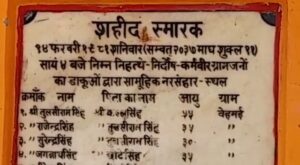 शहीद स्मारक
१४ फरवरी १९८१ शनिवार (सम्वत् २०३७ माघ शुक्ल ११)
सायं ४ बजे निम्न निहत्थे - निर्दोष - कर्मवीर ग्रामजनों
का डाकुओं द्वारा सामूहिक नरसंहार - स्थल
क्रमाँक नाम पिता का नाम आयु ग्राम
१. श्री तुलसीराम सिंह श्री सिंह ५५ वेहमई
२. " राजेन्द्रसिंह " तुलसीराम सिंह ३५ "
३. " सुरेन्द्रसिंह " सिंह ३० "
४. " जगन्नाथसिंह " सिंह ५५ "